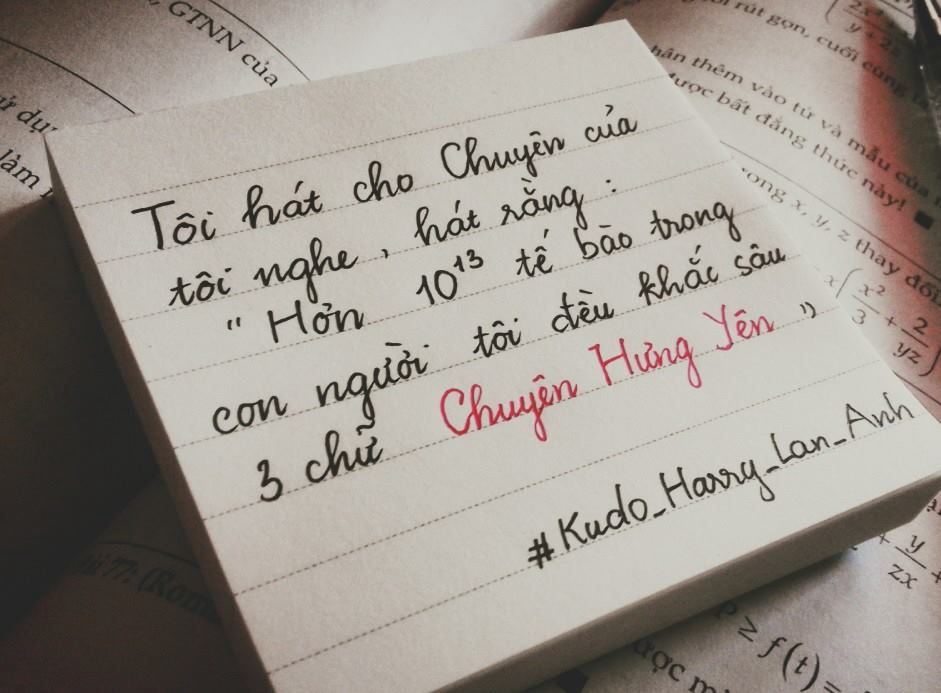 GTNN của
làm
rút gọn, cuối cùng
hân thêm vào tử và mẫu của
được bất đẳng thức này!
ong x, y, z thay đổi
x(x²/3 + 2/yz)
Tôi hát cho Chuyên của
tôi nghe, hát rằng :
" Hơn 10¹³ tế bào trong
con người tôi đều khắc sâu
3 chữ Chuyên Hưng Yên "
#Kudo_Harry_Lan_Anh
+ y/zx +
77: (Rom
P ≥ f(t) =